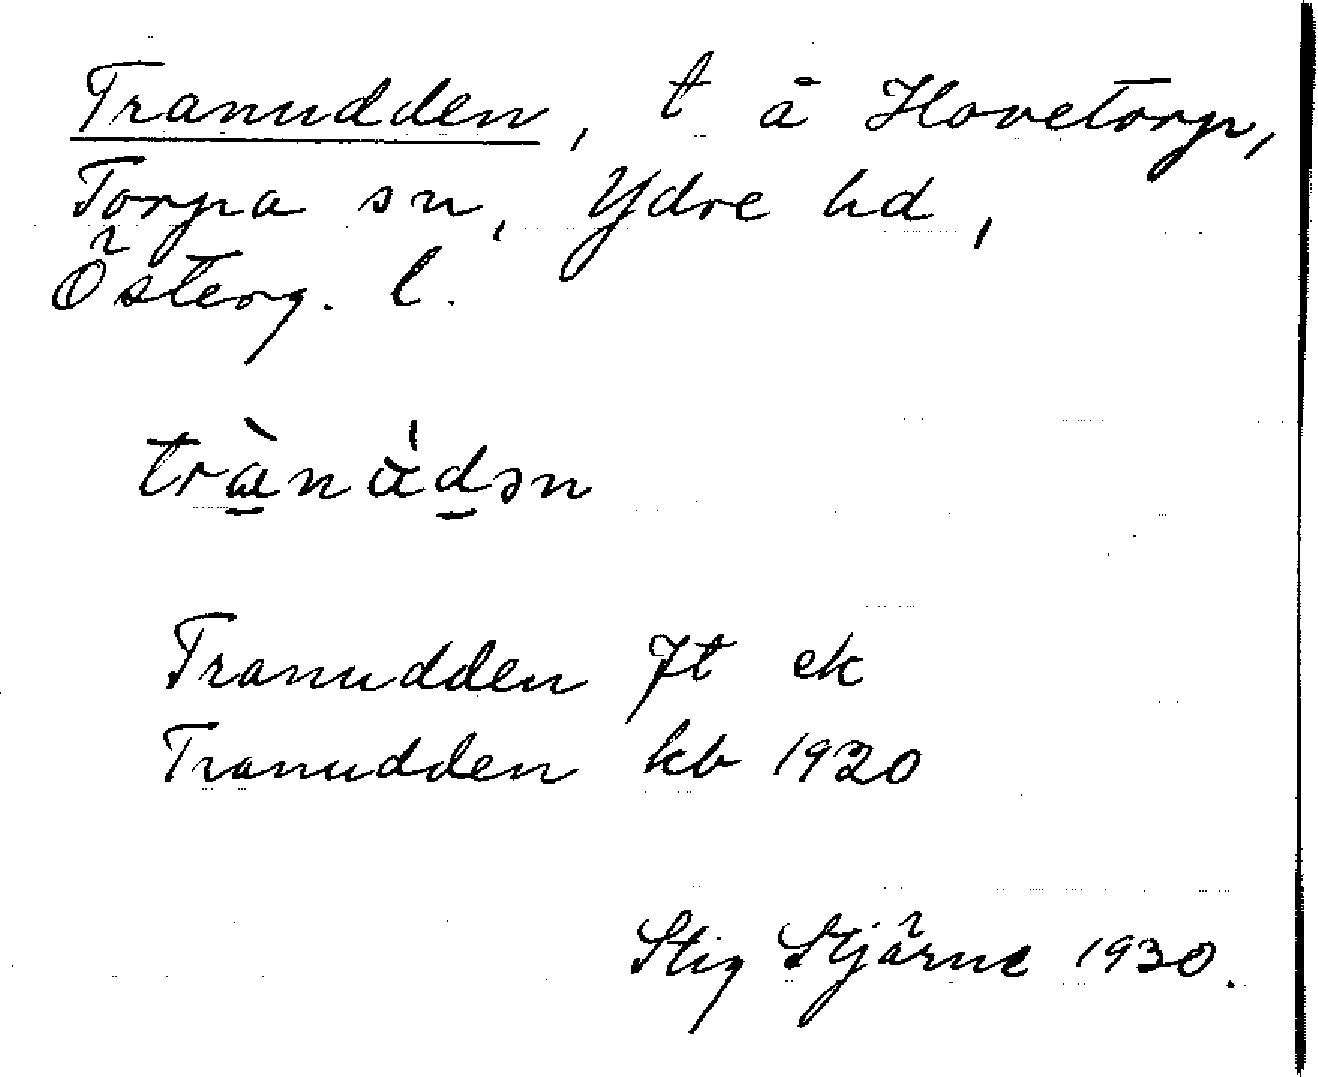 Tranudden, t å Hovetorp,
Torpa sn, Ydre hd,
Österg. l.
trànúdən
Tranudden Jt ek
Tranudden kb 1920
Stig Stjärne 1930.